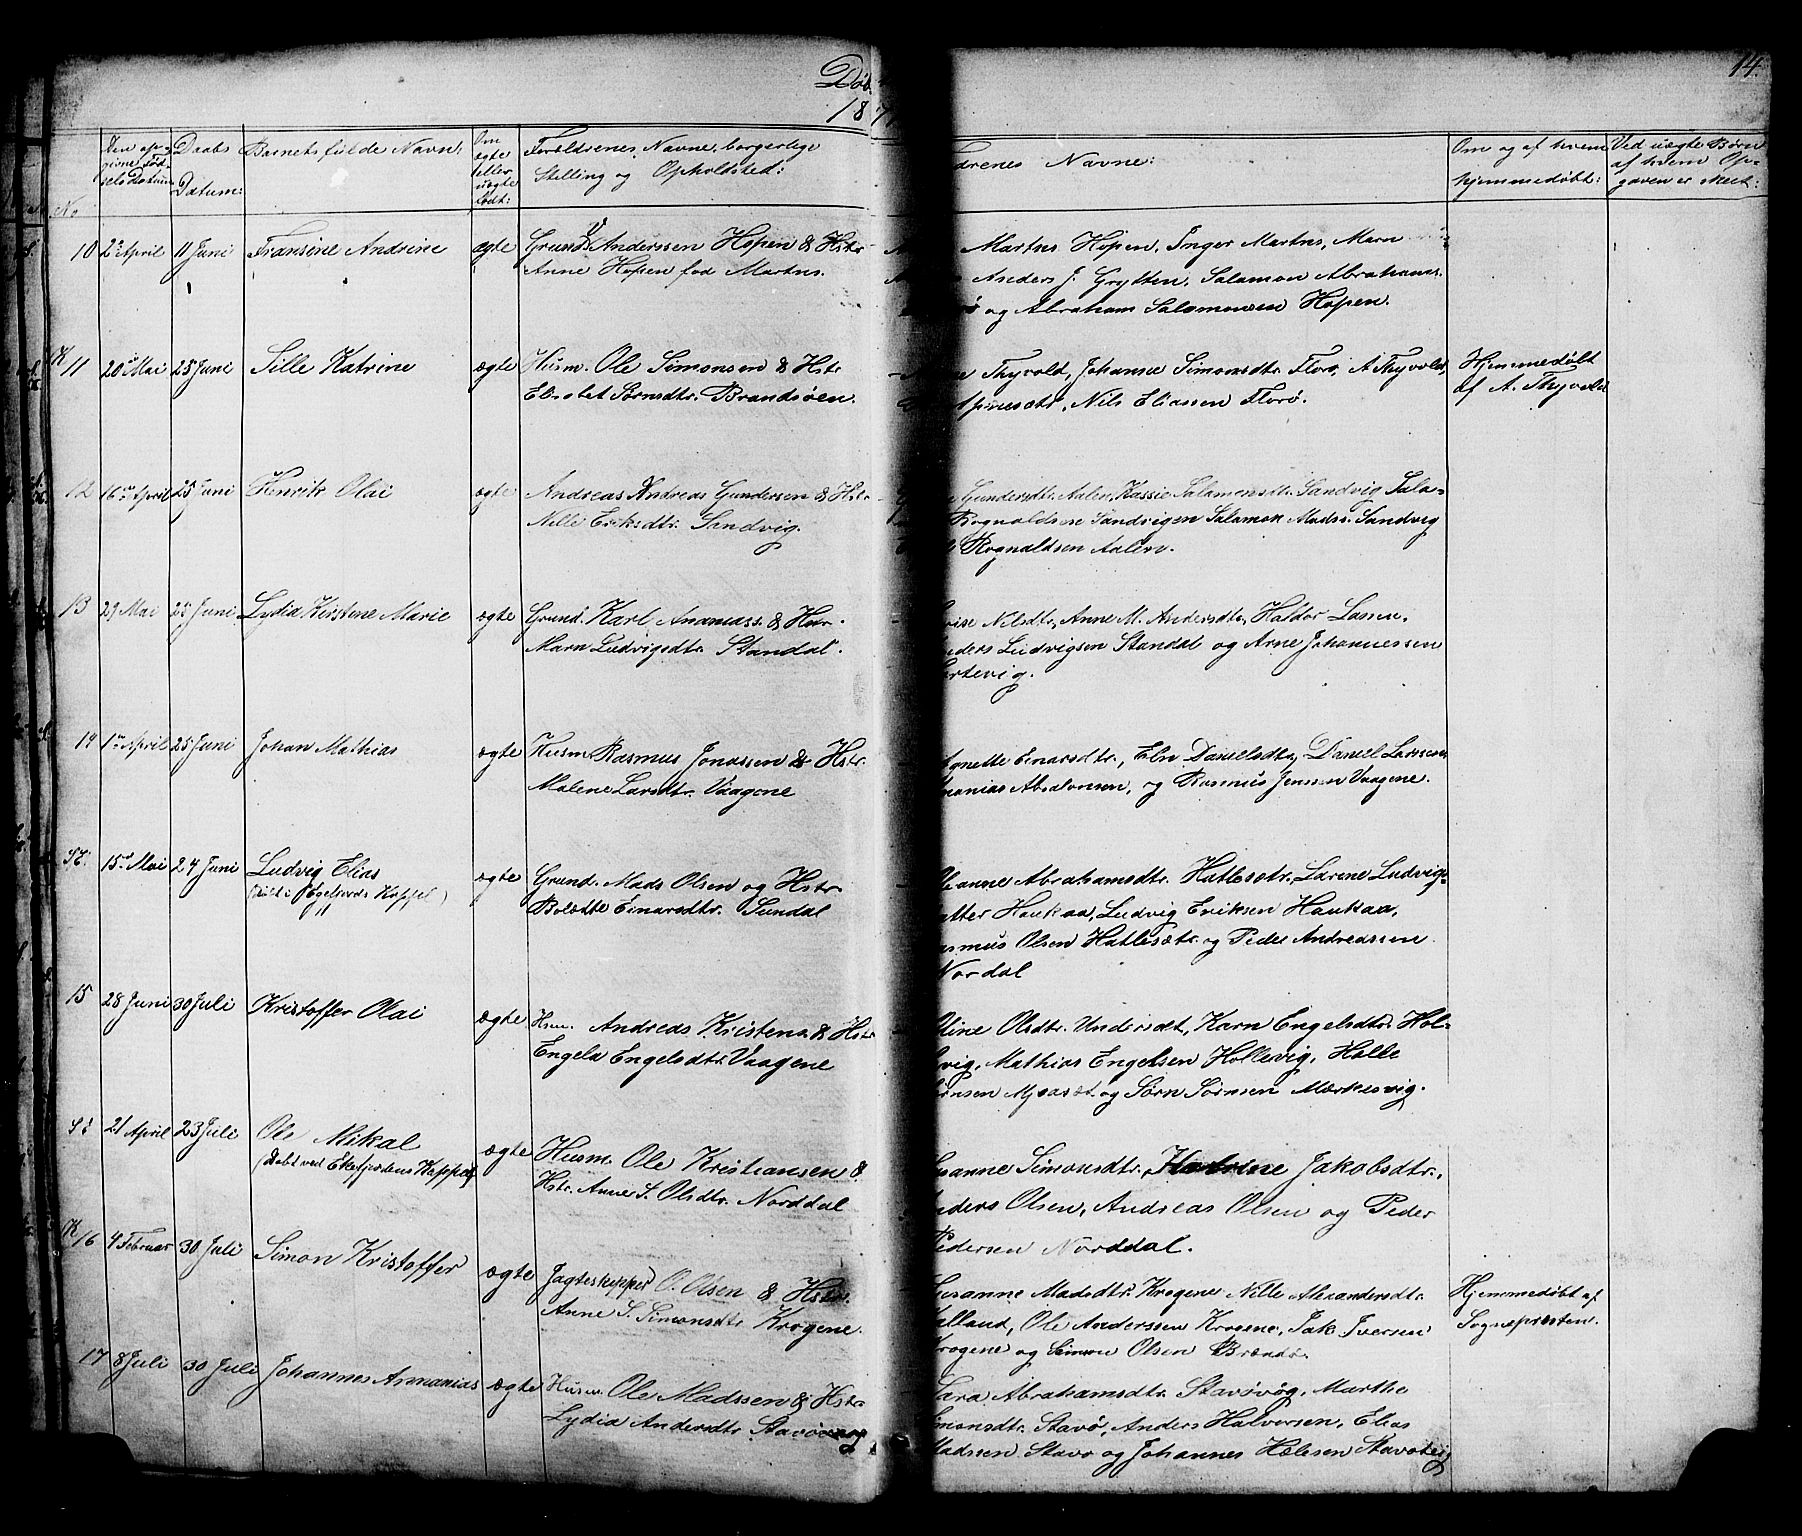 Døb
14.
187
No
Den op-
givne Fød-
sels Datum
Daabs
Datum:
Barnets fulde Navn:
Om
ægte
eller
uægte
født:
Forældrenes Navne, borgerlige
Stilling og Opholdsted:
drenes Navne:
Om og af hvem
hjemmedøbt:
Ved uægte Børn
af hvem Op-
gaven er Meet:
10 2 April 11 Juni Fransine Andrine ægte Grund Anderssen Hopen & Hstr
Anne Hopen fød Martns.
Martns Hopen, Inger Martns, Marn
Anders J. Grytten, Salamon Abrahams.
og Abraham Salomonsen Hopen.
K 11 20 Mai 25 Juni Sille Katrine ægte Husm. Ole Simonsen & Hstr
Elisabet Sørnsdtr. Brandsøen.
Thyvold, Johanne Simonsdtr. Florø, A Thyvold,
Nils Eliassen Florø.
Hjemmedøbt
af A. Thyvold
12 16 April 25 Juni Henrik Olai ægte Andreas Andreas Gundersen & Hstr
Nille Eriksdtr. Sandvig.
Gundersdtr. Aalen, Kassie Salamonsdtr. Sandvig Sala-
Rognaldsen Sandvigen Salamon Mads. Sandvig
Rognaldsen Aalen.
13 29 Mai 25 Juni Lydia Kristene Marie ægte Grund. Karl Ananiass. & Hstr.
Marn Ludvigsdtr. Standal.
Nilsdtr, Anne M. Andersdtr, Haldor Lassen,
nders Ludvigsen Standal og Arne Johannessen
rtevig.
14 1 April 25 Juni Johan Mathias ægte Husm Rasmus Jonassen & Hstr.
Malene Larsdtr. Vaagene
gnette Einarsdtr., Eln Danielsdtr, Daniel Larssen
nanias Absalonsen, og Rasmus Jenssen Vaagene.
SE. 15 Mai 24 Juni Ludvig Elias ægte Grund. Mads Olsen og Hstr
Bolette Einarsdtr. Sundal
leanne Abrahamsdtr. Hatlesetr., Larene Ludvigs-
atter Haukaa, Ludvig Eriksen Haukaa,
asmus Olsen Hatlesætr. og Peder Andreassen
Nordal
15 28 Juni 30 Juli Kristoffer Olai ægte Hsm. Andreas Kristens. & Hstr
Engela Engelsdtr. Vaagene
line Olsdtr. Undersæt, Karn Engelsdtr. Hol-
vig, Mathias Engelsen Hollevig, Halle
ørnsen Myrasæt. og Sørn Sørnsen Mærkesvig.
21 April 23 Juli Ole Mikal
(Døbt ved Ekefjordens Kappel)
ægte Husm Ole Kristiansen &
Hstr. Anne S. Olsdtr. Norddal
usanne Simonsdtr, Katrine Jakobsdtr.,
nders Olsen, Andreas Olsen og Peder
Pedersen Norddal.
K 16 4 Februar 30 Juli Simon Kristoffer ægte Jagteskipper O. Olsen & Hstr.
Anne S. Simonsdtr Krogene.
Susanne Madsdtr. Krogene Nille Alexandersdtr.
alland, Ole Anderssen Krogene, Jak Iversen
rogene og Simon Olsen Brandø.
Hjemmedøbt af
Sognepræsten.
17 8 Juli 30 Juli Johannes Annanias ægte Husm. Ole Madssen & Hstr
Lydia Andersdtr Stavø
Sara Abrahamsdtr. Stavøvøg, Marthe
imonsdtr. Stavø, Anders Halversen, Elias
Madssen Stavø og Johannes Helesen Stavøteig